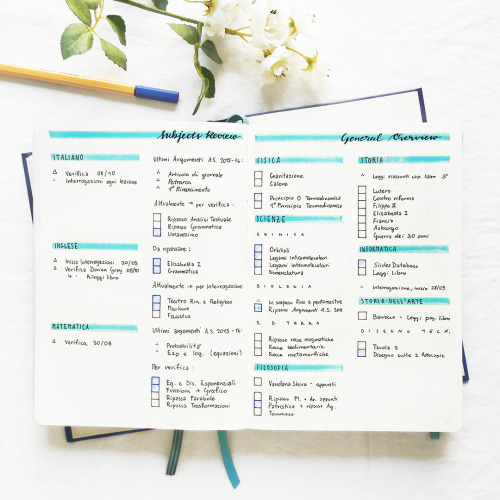 Subjects Review
ITALIANO
Verifica 08/10
Interrogazioni ogni lezione
INGLESE
Inizio Interrogazioni 30/09
Verifica Dorian Gray 08/10
Rileggi libro
MATEMATICA
Verifica, 30/09
Ultimi Argomenti A.S. 2015-16:
Articolo di giornale
Petrarca
1° Rinascimento
Attualmente → per verifica:
Ripasso Analisi Testuale
Ripasso Grammatica
Umanesimo
Da ripassare:
Elisabetta I
Grammatica
Attualmente → per interrogazione:
Teatro Rin. e Religioso
Marlowe
Faustus
Ultimi argomenti A.S. 2015-16:
Probabilità
Esp e log. (equazioni)
Per verifica:
Eq. e Dis. Esponenziali
Funzioni → Grafico
Ripasso Parabole
Ripasso Trasformazioni
General Overview
FISICA
Gravitazione
Calore
Principio 0 Termodinamica
1° Principio Termodinamica
SCIENZE
CHIMICA
Orbitali
Legami intramolecolari
Legami intermolecolari
Nomenclatura
BIOLOGIA
In sospeso fino a pentamestre
Ripasso Argomenti A.S.
S. D. TERRA
Ripasso rocce magmatiche
Rocce sedimentarie
Rocce metamorfiche
FILOSOFIA
Vandana Shiva - appunti
Ripasso Pl. + Ar. appunti
Patristica + ripasso Ag.
Tommaso
STORIA
Leggi riassunti cap. libro 3°
Lutero
Contro riforma
Filippo II
Elisabetta I
Francia
Asburgo
Guerra dei 30 anni
INFORMATICA
Slides Database
Leggi libro
Interrogazione, inizio 28/09
STORIA DELL'ARTE
Barocco - Leggi pag. libro
DISEGNO TECN.
Tavola 2
Disegno suite 2 Autocope